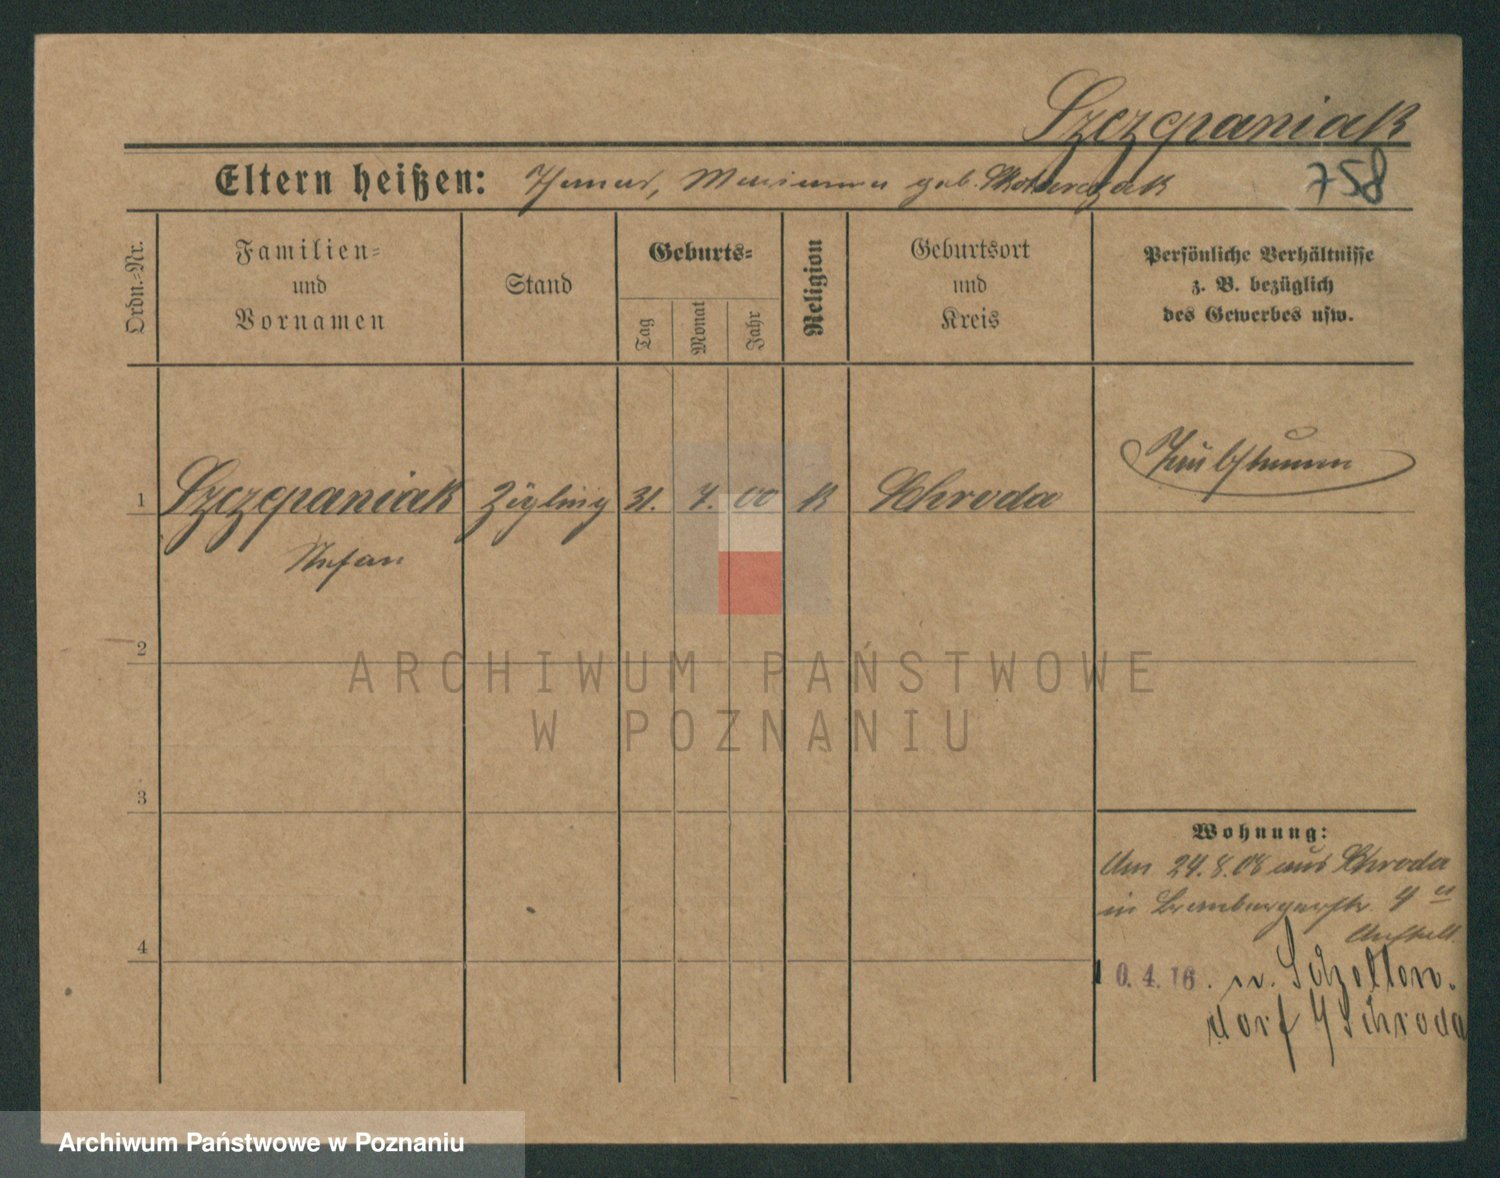 Szczepaniak
Eltern heißen: geb. 758
Ordn.-Nr.
Familien=
und
Vornamen
Stand
Geburts=
Tag
Monat
Jahr
Religion
Geburtsort
und
Kreis
Persönliche Verhältnisse
z. B. bezüglich
des Gewerbes usw.
1 Szczepaniak Zögling 31. 7. 00 K Schroda Taubstumm
Stefan
2
3
4
Wohnung:
Am 24.8.08 aus Schroda
in Brombergerstr. 4
10.4.16. n.
dorf Schroda
ARCHIWUM PAŃSTWOWE
W POZNANIU
Archiwum Państwowe w Poznaniu